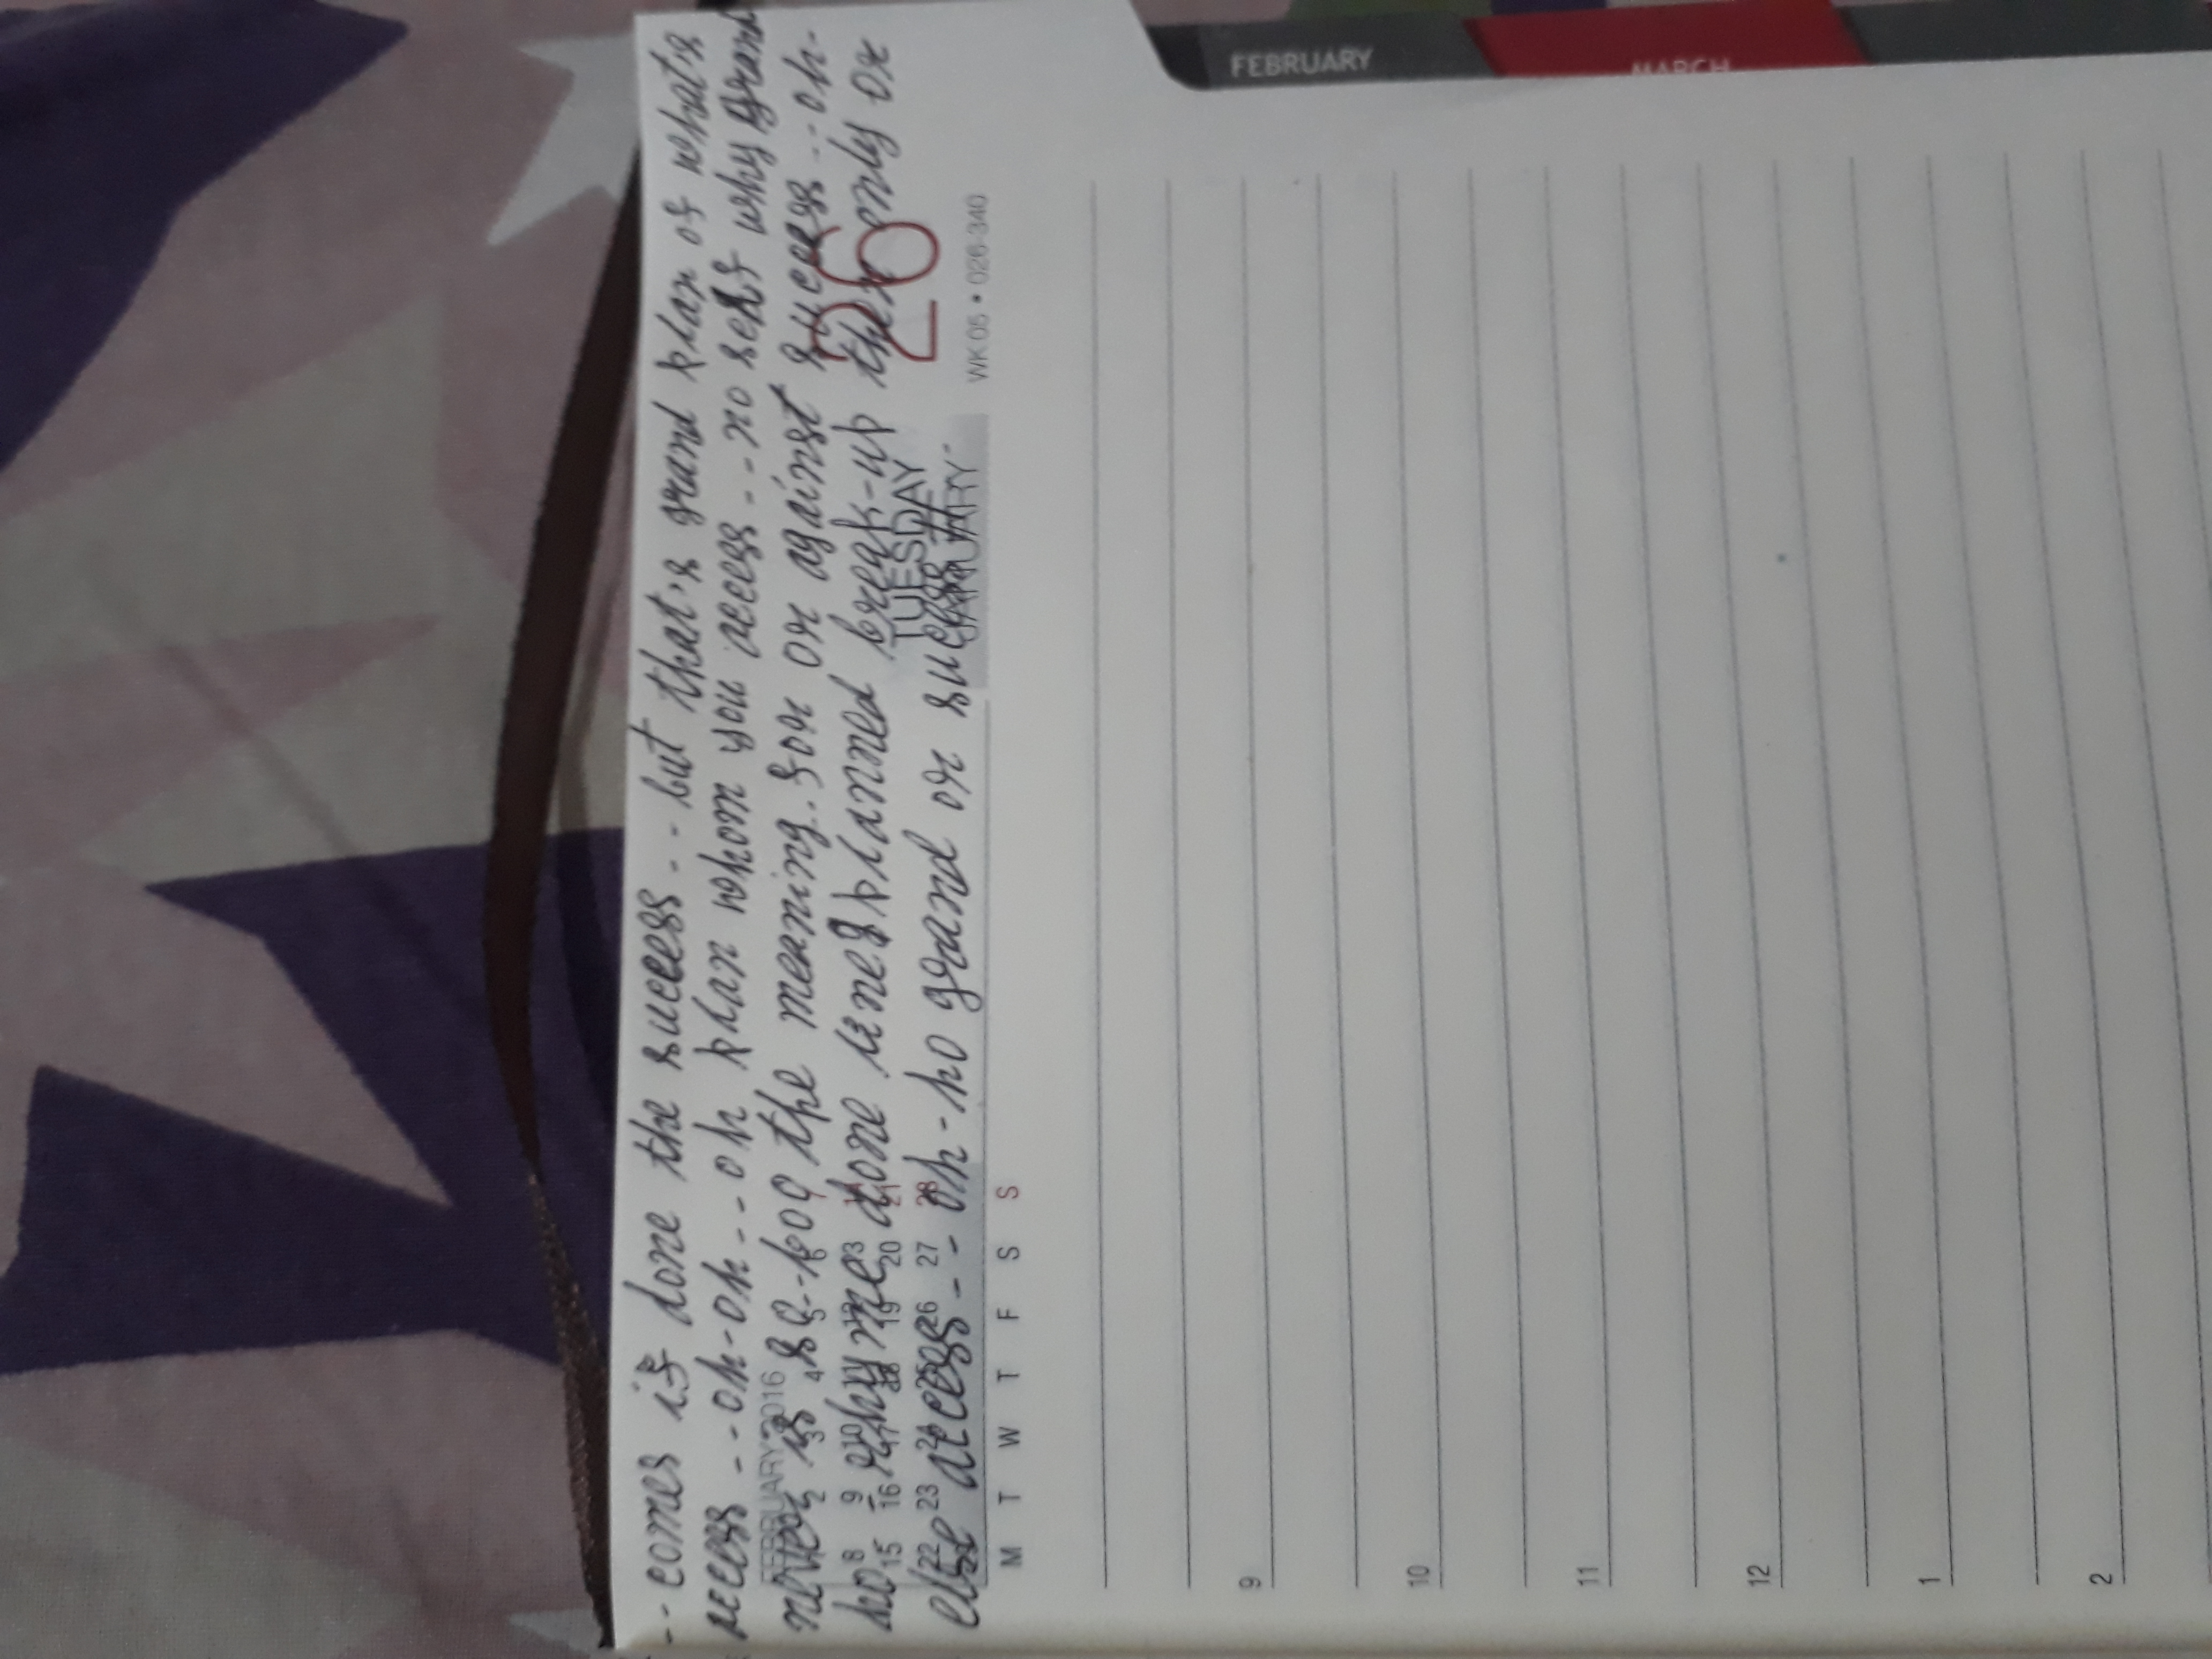 -- comes if done the success -- but that's grand plan of what's
access -- oh-oh -- oh plan whom you access -- no self why grand
FEBRUARY 2016
never is so -- too the meaning. for or against success -- oh-
ho -- why me done line planned break-up then only or
else access -- oh-ho grand or sucess //
1 2 3 4 5 6 7
8 9 10 11 12 13 14
15 16 17 18 19 20 21
22 23 24 25 26 27 28
29
M T W T F S S
TUESDAY
JANUARY
26
WK 05 • 026-340
9
10
11
12
1
2
FEBRUARY
MARCH